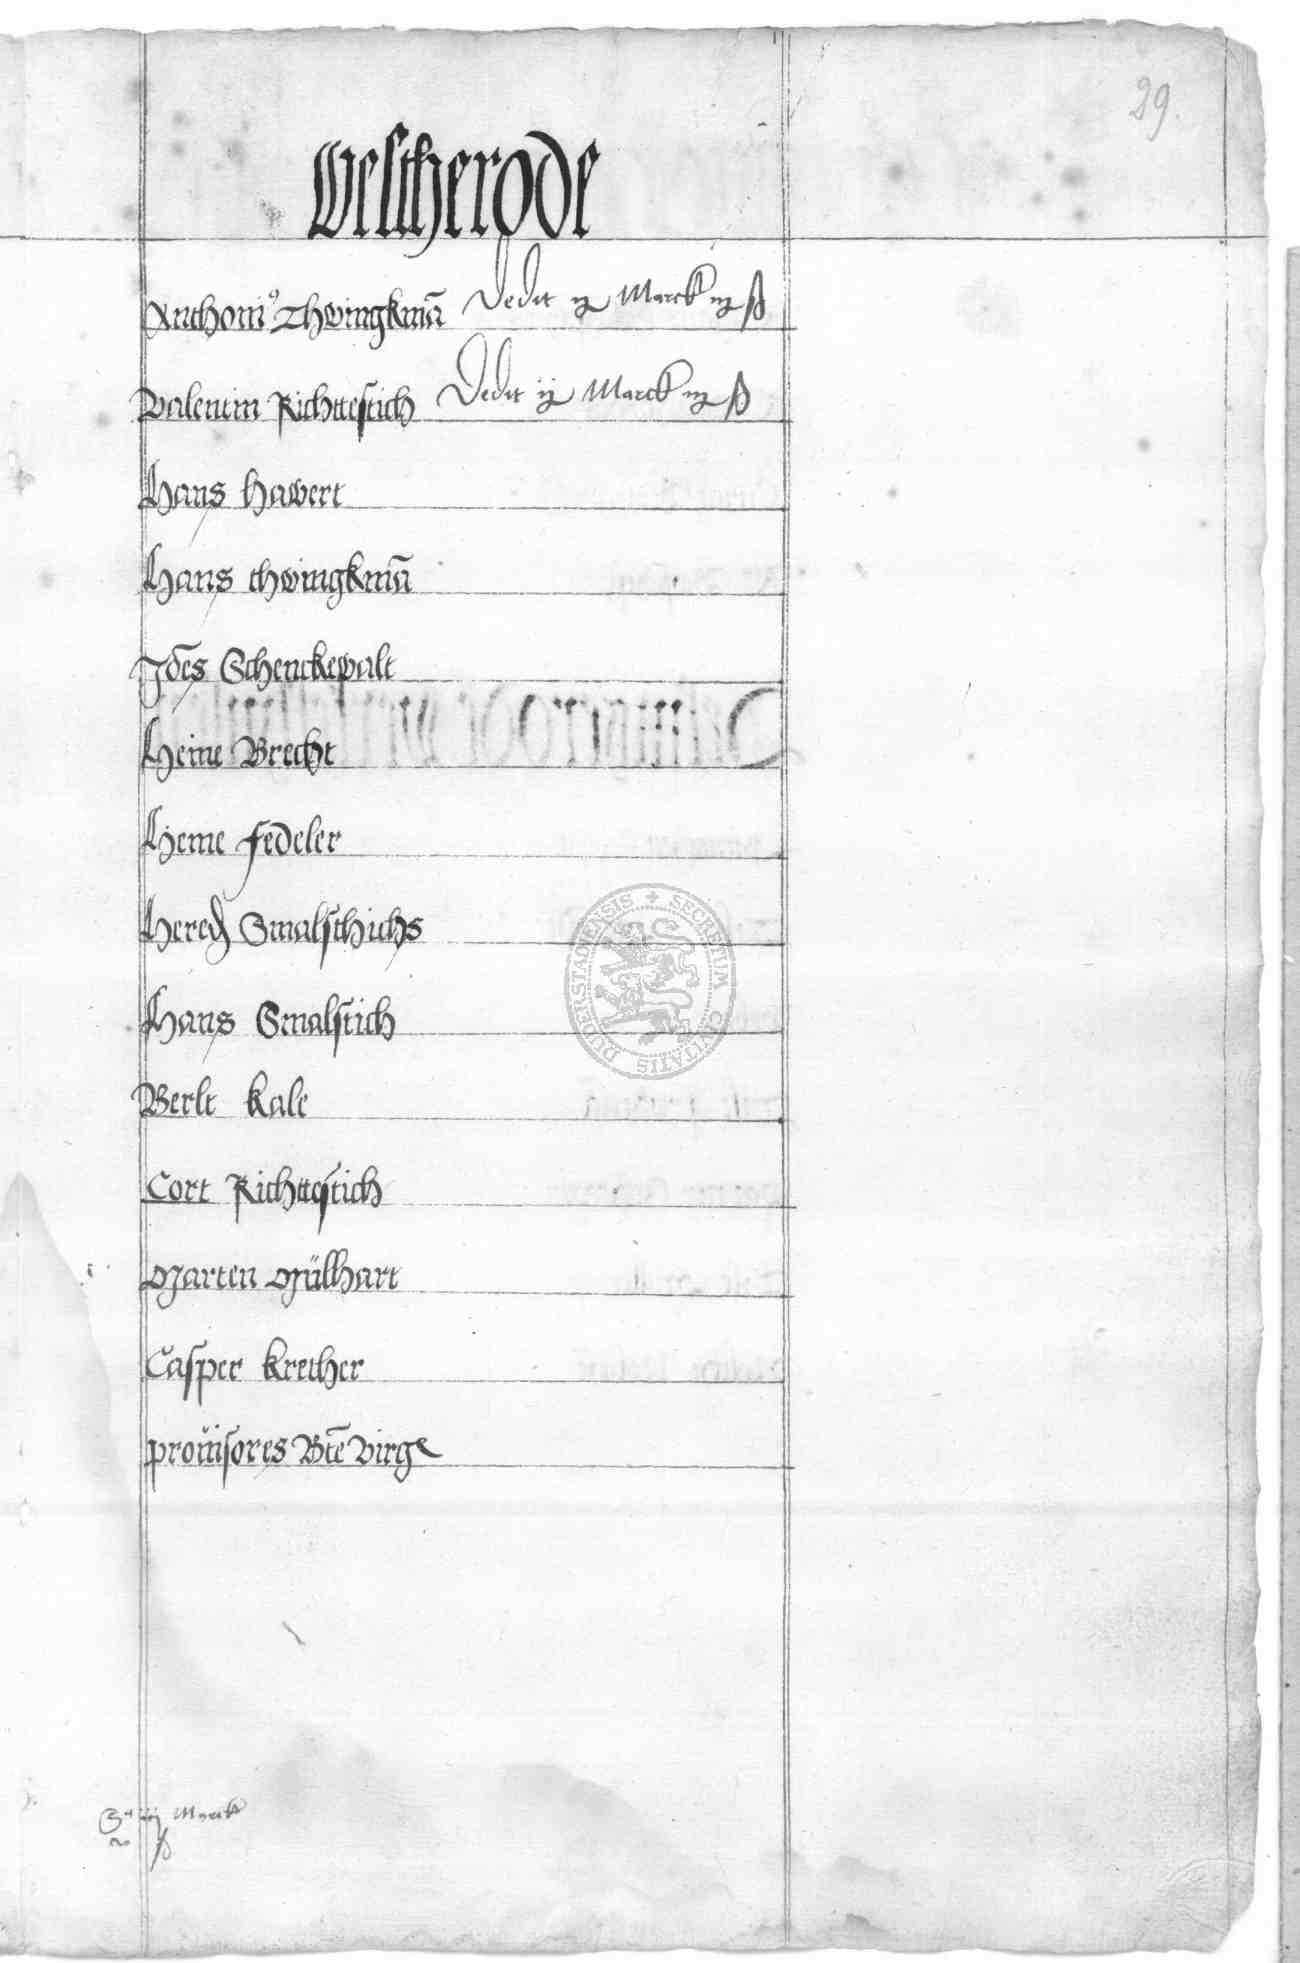 29.
Westherode
Anthoni⁹ Thwingkmā Dedit ij Marck iij ß
Valentin Richttestich Dedit ij Marck iij ß
Hans Hawert
Hans thwingkmā
Joēs Schenckewalt
Heine Brecht
Heine Fedeler
Hered Smalsthichs
Hans Smalstich
Berlt Kale
Cort Richttestich
Marten Müllhart
Casper Krether
prouisores Btē Virg
SECRETUM CIVITATIS DUDERSTADIENSIS
Marck
ß